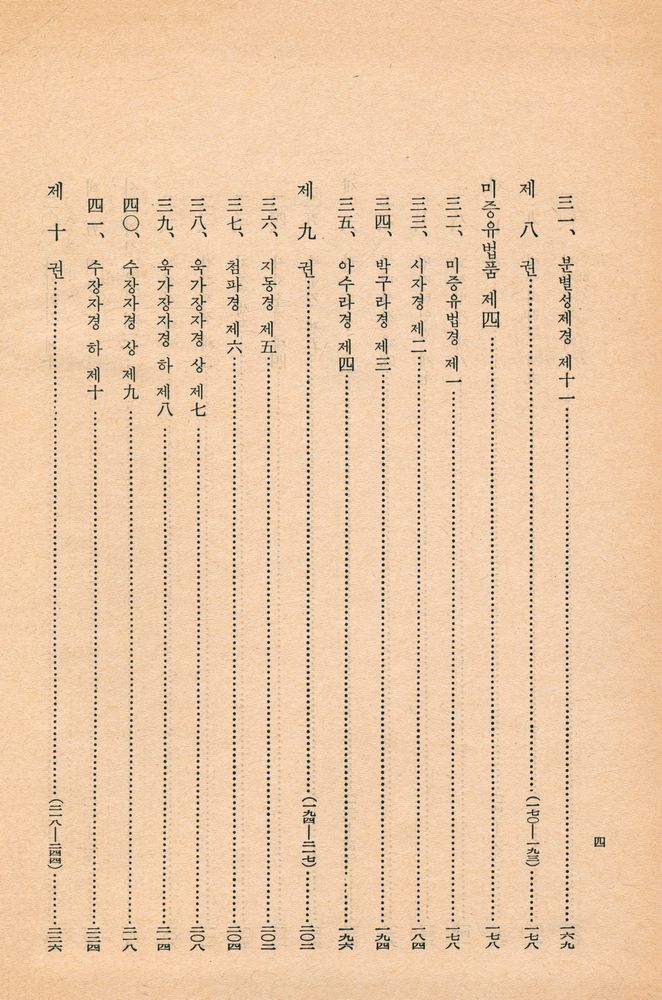 三一、 분별성제경 제十一 一六九
제 八 권 (一七〇—一九三) 一七八
미증유법품 제四 一七八
三二、 미증유법경 제一 一七八
三三、 시자경 제二 一八四
三四、 박구라경 제三 一九四
三五、 아수라경 제四 一九六
제 九 권 (一九四—二一七) 二〇二
三六、 지동경 제五 二〇二
三七、 첨파경 제六 二〇四
三八、 욱가장자경 상 제七 二〇八
三九、 욱가장자경 하 제八 二一四
四〇、 수장자경 상 제九 二一八
四一、 수장자경 하 제十 二二四
제 十 권 (二一八—二四四) 二二六
四